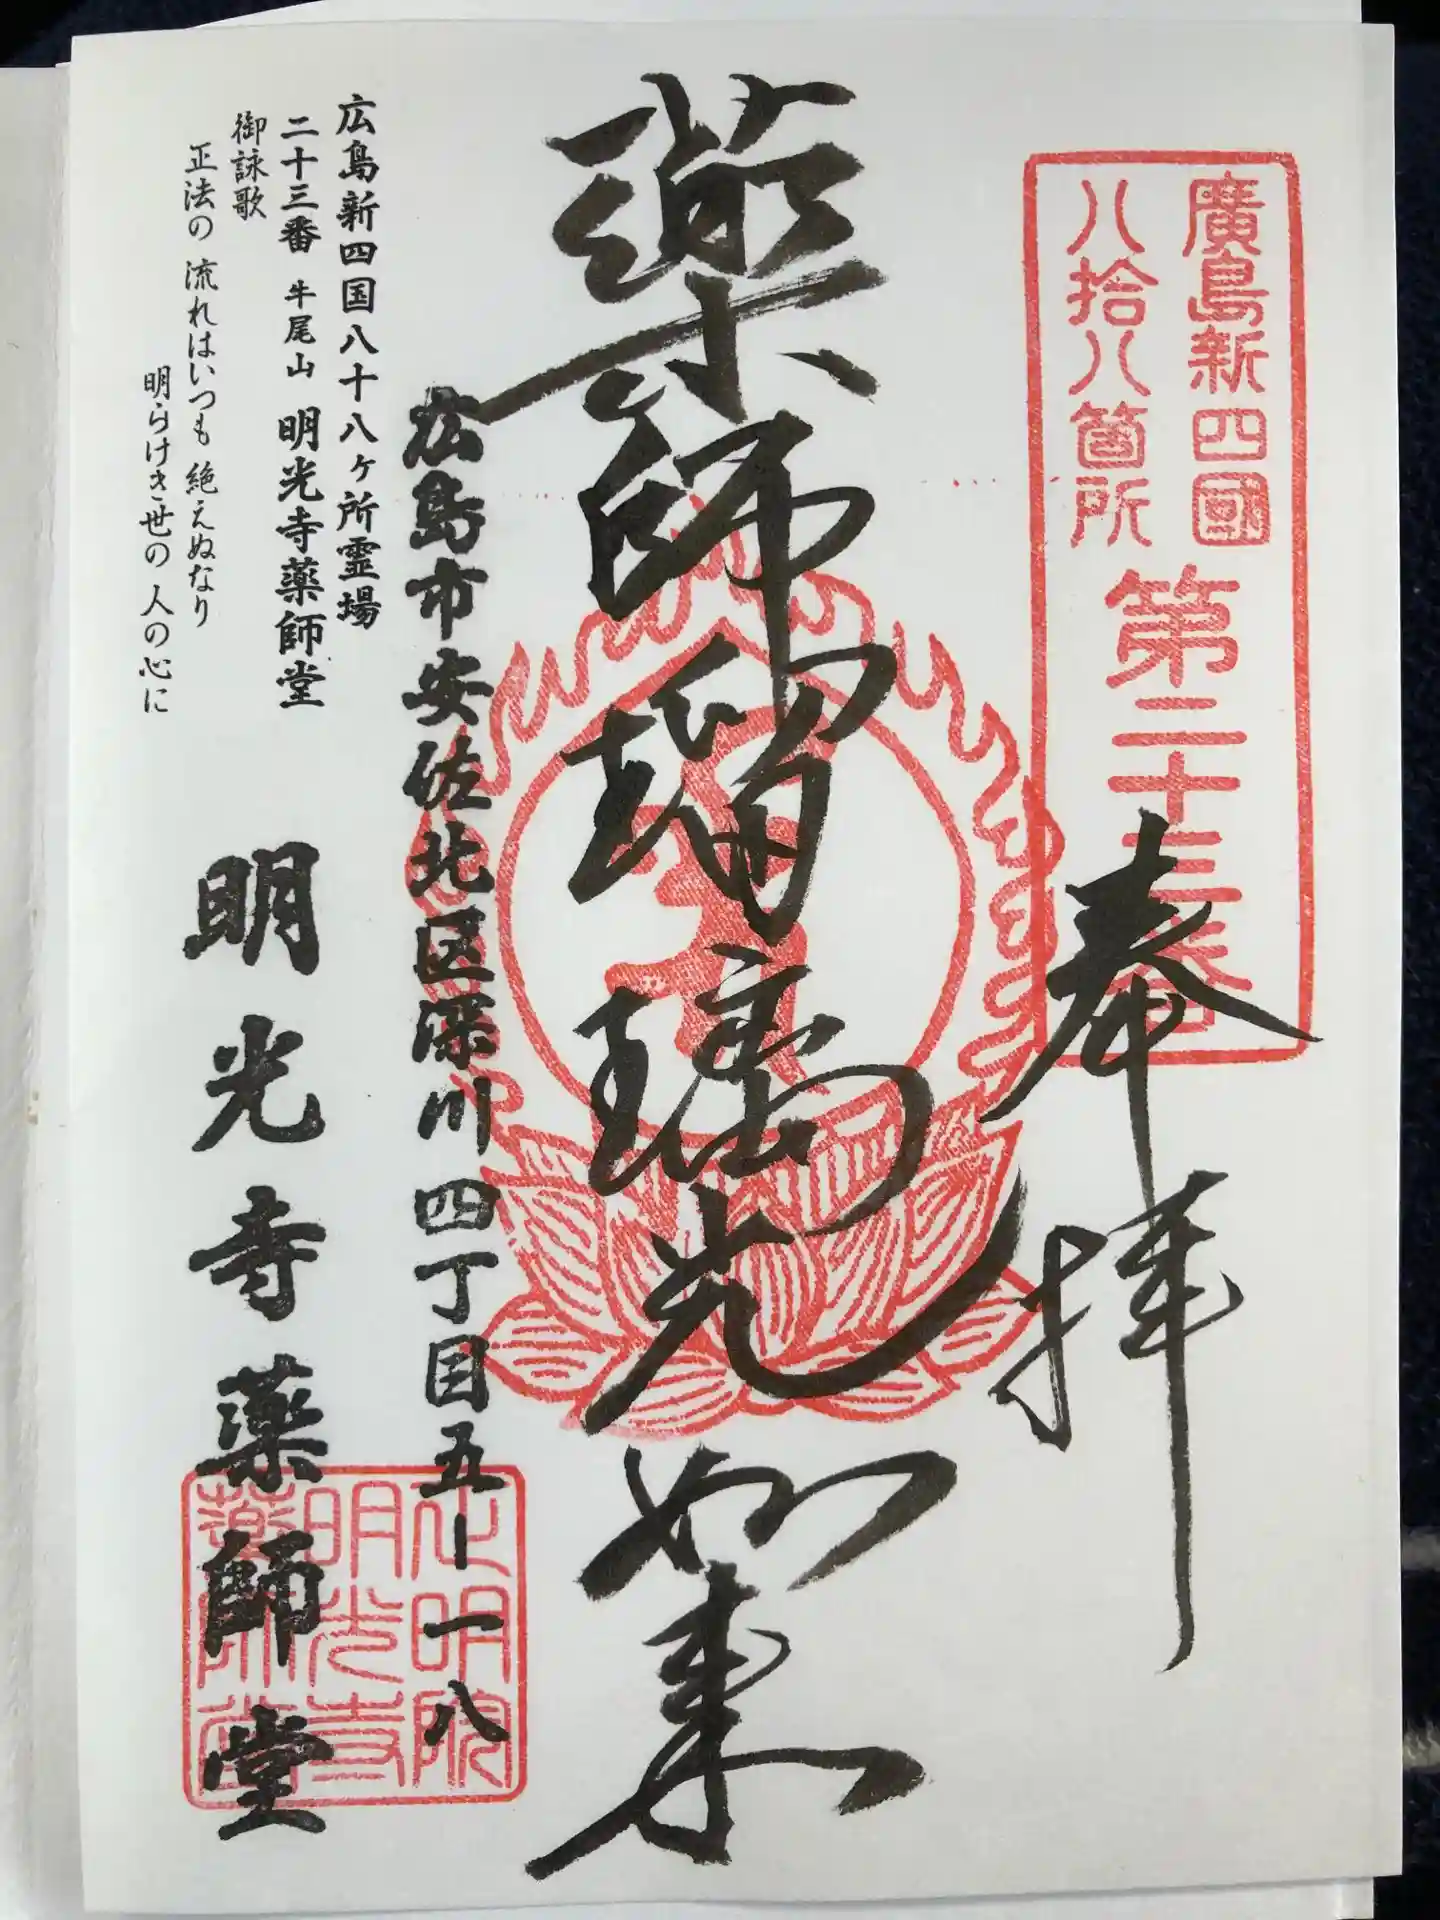 廣島新四國
八拾八箇所
第二十三番
奉拝
薬師瑠璃光如来
広島市安佐北区深川四丁目五ー一八
広島新四国八十八ヶ所霊場
二十三番 牛尾山 明光寺薬師堂
御詠歌
正法の 流れはいつも 絶えぬなり
明らけき世の 人の心に
明光寺薬師堂
正明院
明光寺
薬師堂